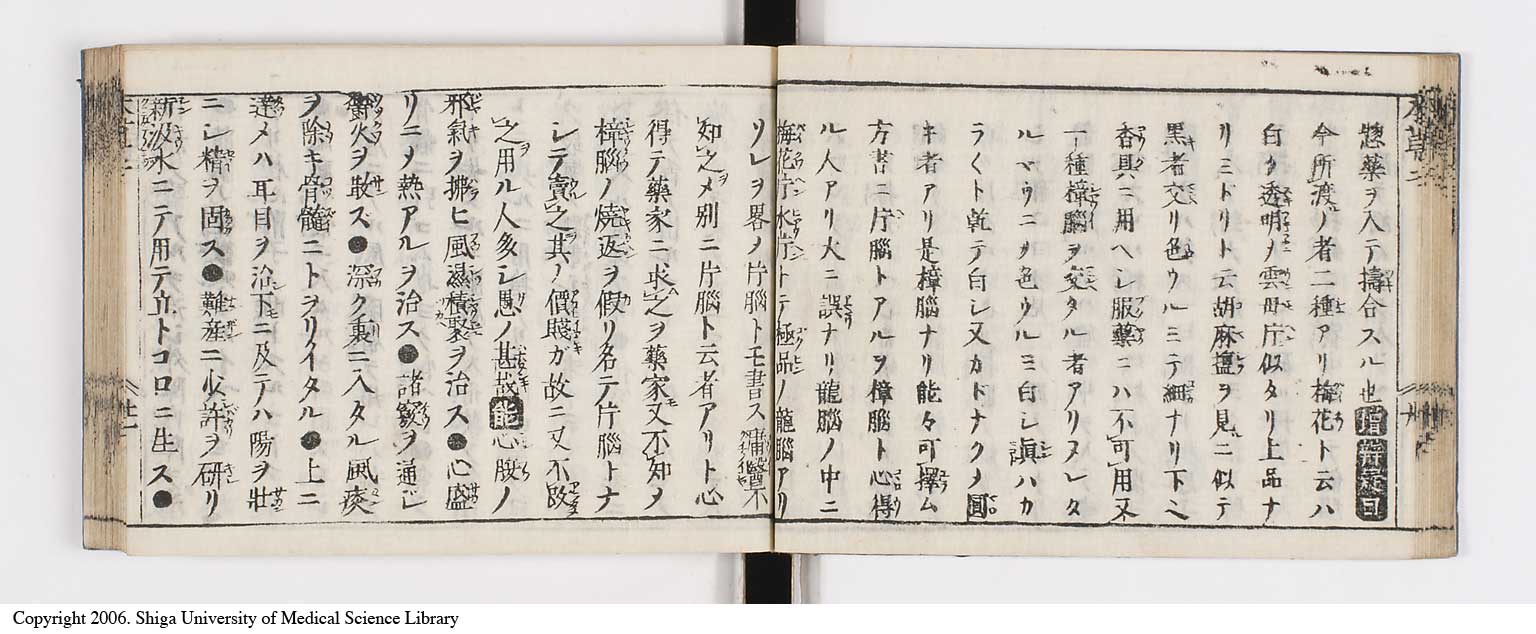 惣藥ヲ入テ擣合スル也
今所渡ノ者二種アリ梅花ト云ハ
白ク透明ノ雲母片似タリ上品ナ
リミドリト云胡麻鹽ヲ見ニ似テ
黒者交リ色ウルミテ細ナリ下ヘ
香具ニ用ヘシ服藥ニハ不可用又
一種樟腦ヲ交タル者アリヌレタ
ルヤウニメ色ウルミ白シ眞ハカ
ラくト乾テ白シ又カドナクノ圓
キ者アリ是樟腦ナリ能々可擇ム
方書ニ片腦トアルヲ樟腦ト心得
ル人アリ火ニ誤ナリ龍腦ノ中ニ
梅花片水片トテ極品ノ龍腦アリ
リレヲ畧ノ片腦トモ書ス庸醫不
知之メ別ニ片腦ト云者アリト心
得テ藥家ニ求之ヲ藥家又不知ヲ
樟腦ノ燒返ヲ假リ名テ片腦トナ
シテ賣之其ノ價賤ガ故ニ又不改
之用ル人多シ愚ノ甚哉 能 心腹ノ
邪氣ヲ拂ヒ風濕積聚ヲ治ス●心盛
リニノ熱アルヲ治ス●諸竅ヲ通シ
欝火ヲ散ス●深ク裏ニ入タル風痰
ヲ除キ骨髓ニトヲリイタル●上ニ
達メハ耳目ヲ治下ニ及テハ陽ヲ壯
ニシ精ヲ固ス●難産ニ少許ヲ研リ
新汲水ニテ用テ立トコロニ生ス●
Copyright 2006. Shiga University of Medical Science Library